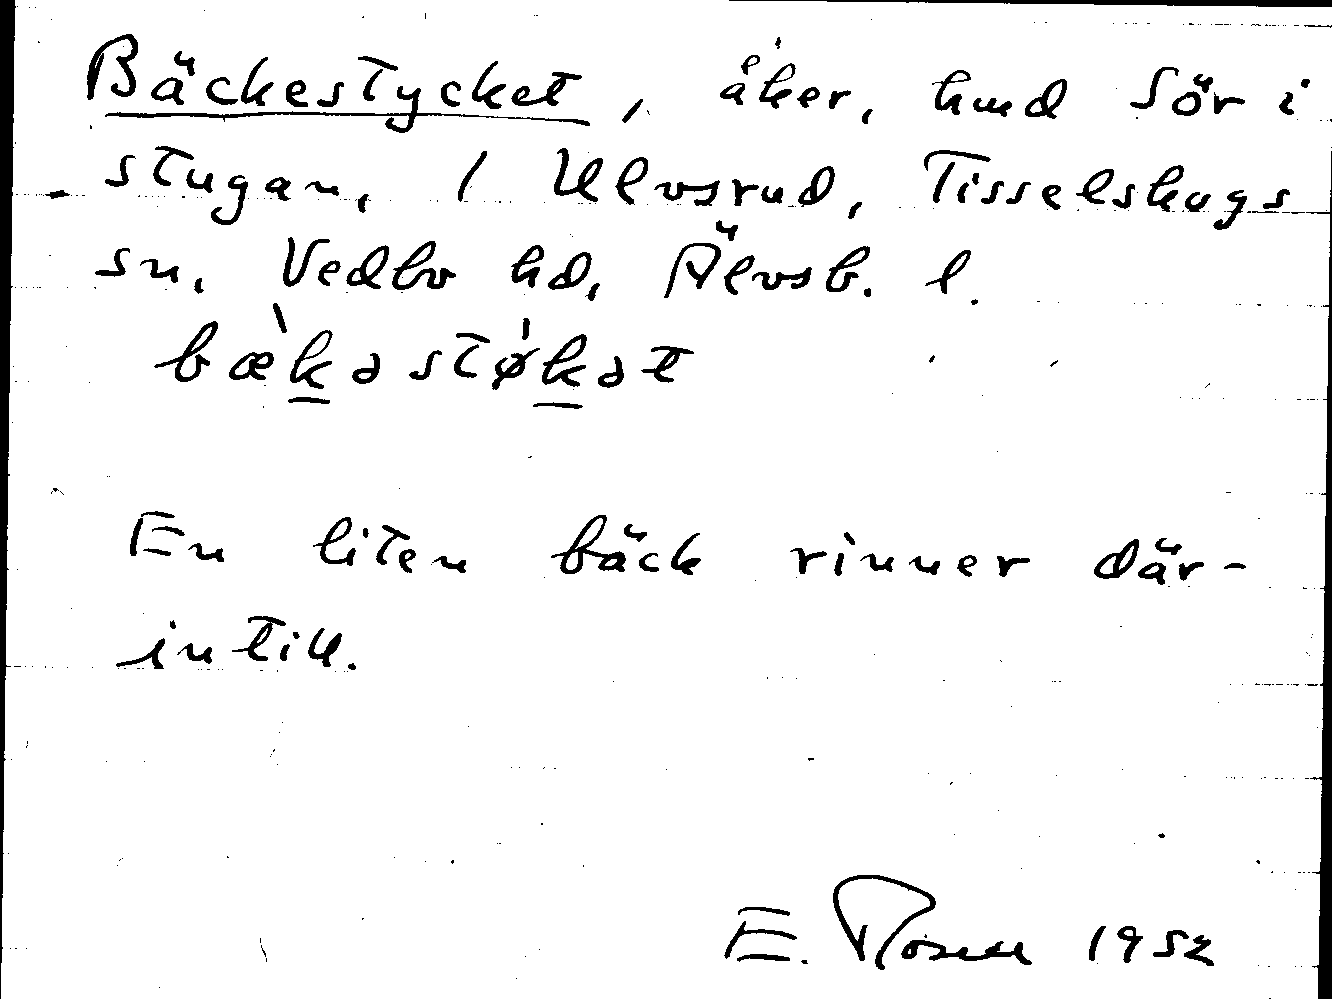 Bäckestycket, åker, hmd Sör i
stugan, 1 Ulvsrud, Tisselskogs
sn, Vedbo hd, Älvsb. l.
bæ̀kəstø̍kət
En liten bäck rinner där-
intill.
E. Rosell 1952